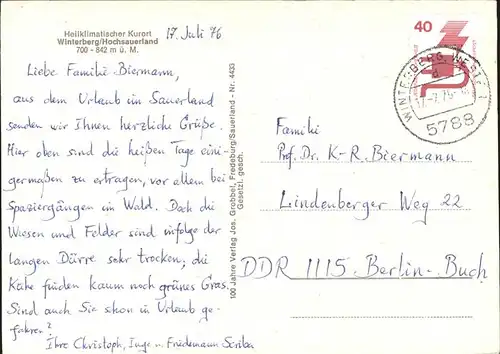 Heilklimatischer Kurort
Winterberg/Hochsauerland
700 - 842 m ü. M.
17. Juli 76
Liebe Familie Biermann,
aus dem Urlaub im Sauerland
senden wir Ihnen herzliche Grüße.
Hier oben sind die heißen Tage eini-
germaßen zu ertragen, vor allem bei
Spaziergängen im Wald. Doch die
Wiesen und Felder sind infolge der
langen Dürre sehr trocken; die
Kühe finden kaum noch grünes Gras.
Sind auch Sie schon in Urlaub ge-
fahren?
Ihre Christoph, Inge u. Friedemann Scriba
100 Jahre Verlag Jos. Grobbel, Fredeburg/Sauerland - Nr. 4433
Gesetzl. gesch.
40
WINTERBERG, WESTF
5788
Familie
Prof. Dr. K-R. Biermann
Lindenberger Weg 22
DDR 1115 Berlin-Buch